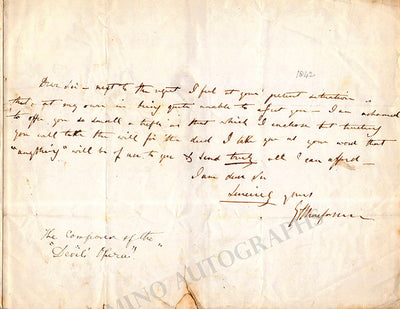 1842
Dear Sir – next to the regret I feel at your present situation is
that at my own in being quite unable to assist you – I am ashamed
to offer you so small a trifle as that which I enclose but trusting
you will take the will for the deed I take you at your word that
"anything" will be of use to you & send truly all I can afford –
I am dear Sir
Sincerely yours
The Composer of the
"Devil's Opera"
MINO AUTOGRAPHS